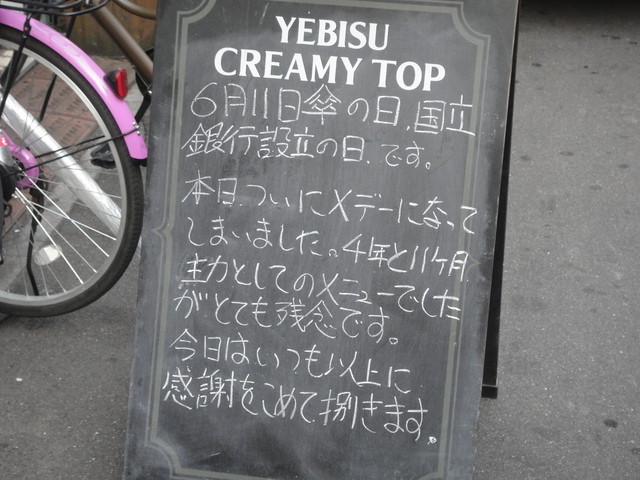 YEBISU
CREAMY TOP
6月11日傘の日.国立
銀行設立の日.です。
本日ついにXデーになって
しまいました。4年と11ヶ月
主力としてのメニューでした
がとても残念です。
今日はいつも以上に
感謝をこめて捌きます。